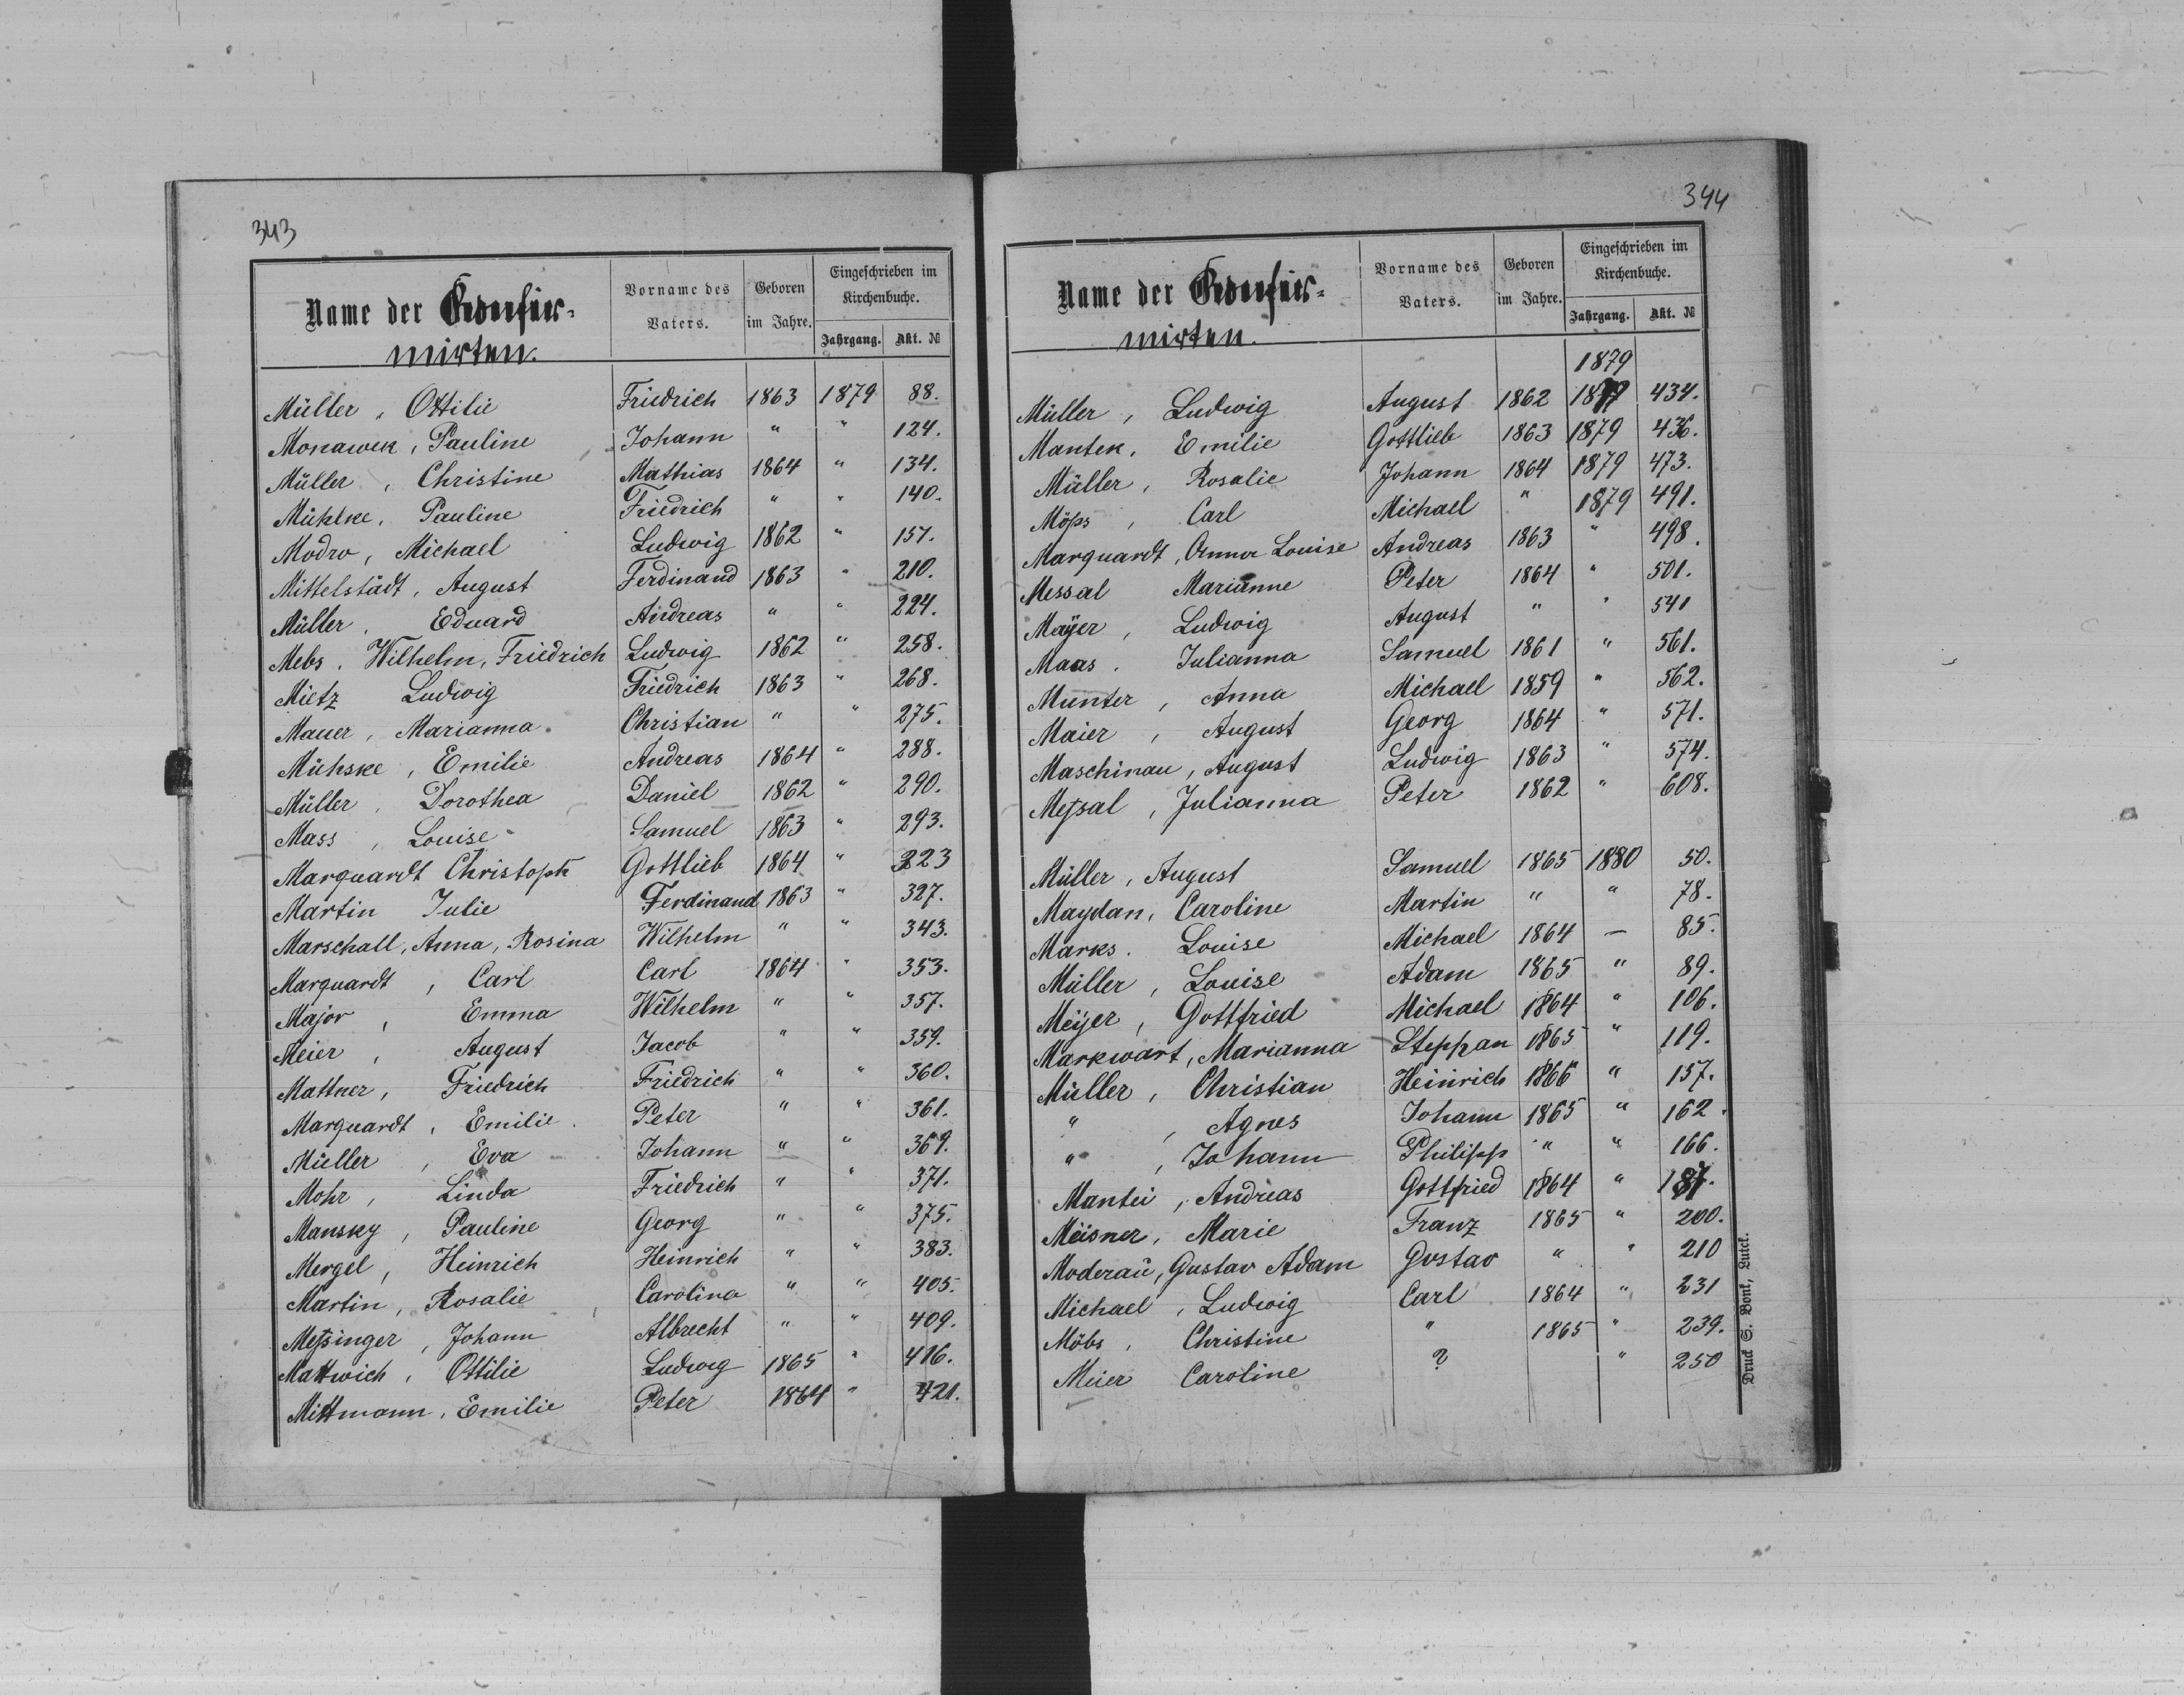 343
Name der Confir-
mirten.
Vorname des Vaters.
Geboren im Jahre.
Eingeschrieben im Kirchenbuche.
Jahrgang. Akt. №
Müller, Ottilie Friedrich 1863 1879 88.
Monawek, Pauline Johann " " 124.
Müller, Christine Mathias 1864 " 134.
Mühlke, Pauline Friedrich " " 140.
Modro, Michael Ludwig 1862 " 157.
Mittelstädt, August Ferdinand 1863 " 210.
Müller, Eduard Andreas " " 224.
Mebs, Wilhelm, Friedrich Ludwig 1862 " 258.
Mietz Ludwig Friedrich 1863 " 268.
Mauer, Marianna Christian " " 275.
Mühske, Emilie Andreas 1864 " 288.
Müller, Dorothea Daniel 1862 " 290.
Mass, Louise Samuel 1863 " 293.
Marquardt Christoph Gottlieb 1864 " 323
Martin Julie Ferdinand 1863 " 327.
Marschall, Anna, Rosina Wilhelm " " 343.
Marquardt, Carl Carl 1864 " 353.
Major, Emma Wilhelm " " 357.
Meier, August Jacob " " 359.
Mattner, Friedrich Friedrich " " 360.
Marquardt, Emilie Peter " " 361.
Müller, Eva Johann " " 369.
Mohr, Linda Friedrich " " 371.
Mansky, Pauline Georg " " 375.
Mergel, Heinrich Heinrich " " 383.
Martin, Rosalie Carolina " " 405.
Meßinger, Johann Albrecht " " 409.
Mattwich, Ottilie Ludwig 1865 " 416.
Mittmann, Emilie Peter 1864 " 421.
344
Name der Confir-
mirten.
Vorname des Vaters.
Geboren im Jahre.
Eingeschrieben im Kirchenbuche.
Jahrgang. Akt. №
1879
Müller, Ludwig August 1862 434.
Mantek, Emilie Gottlieb 1863 1879 436.
Müller, Rosalie Johann 1864 1879 473.
Möps, Carl Michael " 1879 491.
Marquardt, Anna Louise Andreas 1863 " 498.
Messal Marianne Peter 1864 " 501.
Mayer, Ludwig August " " 541
Maas, Julianna Samuel 1861 " 561.
Munter, Anna Michael 1859 " 562.
Maier, August Georg 1864 " 571.
Maschinau, August Ludwig 1863 " 574.
Meßal, Julianna Peter 1862 " 608.
Müller, August Samuel 1865 1880 50.
Maydan, Caroline Martin " " 78.
Marks. Louise Michael 1864 — 85.
Müller, Louise Adam 1865 " 89.
Meyer, Gottfried Michael 1864 " 106.
Markwart, Marianna Steppan 1865 " 119.
Müller, Christian Heinrich 1866 " 157.
", Agnes Johann 1865 " 162.
", Johann Philipp " " 166.
Mantei, Andreas Gottfried 1864 " 187.
Meisner, Marie Franz 1865 " 200.
Moderau, Gustav Adam Gustav " " 210
Michael, Ludwig Carl 1864 " 231
Möbs, Christine " 1865 " 239.
Meier Caroline ? " 250
Druck S. Bonk, Lutck.